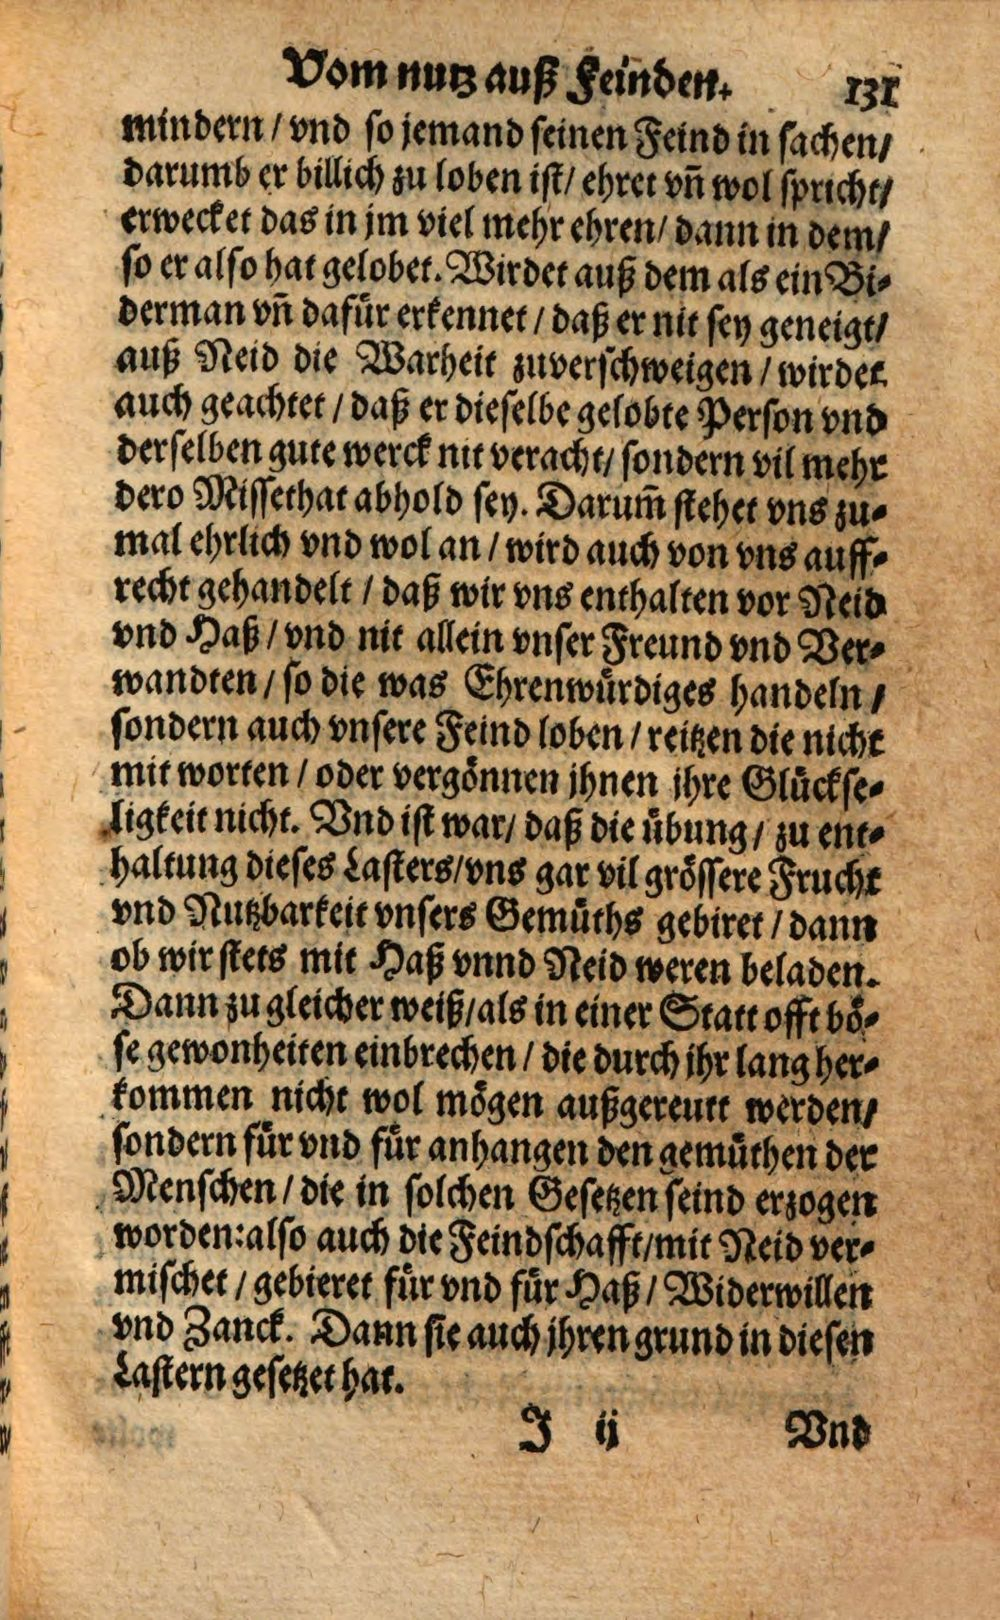 Vom nutz auß Feinden. 131
mindern / vnd so jemand seinen Feind in sachen/
darumb er billich zu loben ist/ ehret vñ wol spricht/
erwecket das in jm viel mehr ehren/ dann in dem/
so er also hat gelobet. Wirdet auß dem als ein Bi⸗
derman vñ dafür erkennet / daß er nit sey geneigt/
auß Neid die Warheit zuverschweigen / wirdet
auch geachtet / daß er dieselbe gelobte Person vnd
derselben gute werck nit veracht/ sondern vil mehr
dero Missethat abhold sey. Darum̃ stehet vns zu⸗
mal ehrlich vnd wol an / wird auch von vns auff⸗
recht gehandelt / daß wir vns enthalten vor Neid
vnd Haß / vnd nit allein vnser Freund vnd Ver⸗
wandten / so die was Ehrenwürdiges handeln /
sondern auch vnsere Feind loben / reitzen die nicht
mit worten / oder vergönnen jhnen jhre Glückse⸗
ligkeit nicht. Vnd ist war/ daß die übung / zu ent⸗
haltung dieses Lasters/vns gar vil grössere Frucht
vnd Nutzbarkeit vnsers Gemüths gebiret / dann
ob wir stets mit Haß vnnd Neid weren beladen.
Dann zu gleicher weiß/als in einer Statt offt bö⸗
se gewonheiten einbrechen / die durch jhr lang her⸗
kommen nicht wol mögen außgereutt werden/
sondern für vnd für anhangen den gemüthen der
Menschen / die in solchen Gesetzen seind erzogen
worden:also auch die Feindschafft/mit Neid ver⸗
mischet / gebieret für vnd für Haß / Widerwillen
vnd Zanck. Dann sie auch jhren grund in diesen
Lastern gesetzet hat.
J ij Vnd